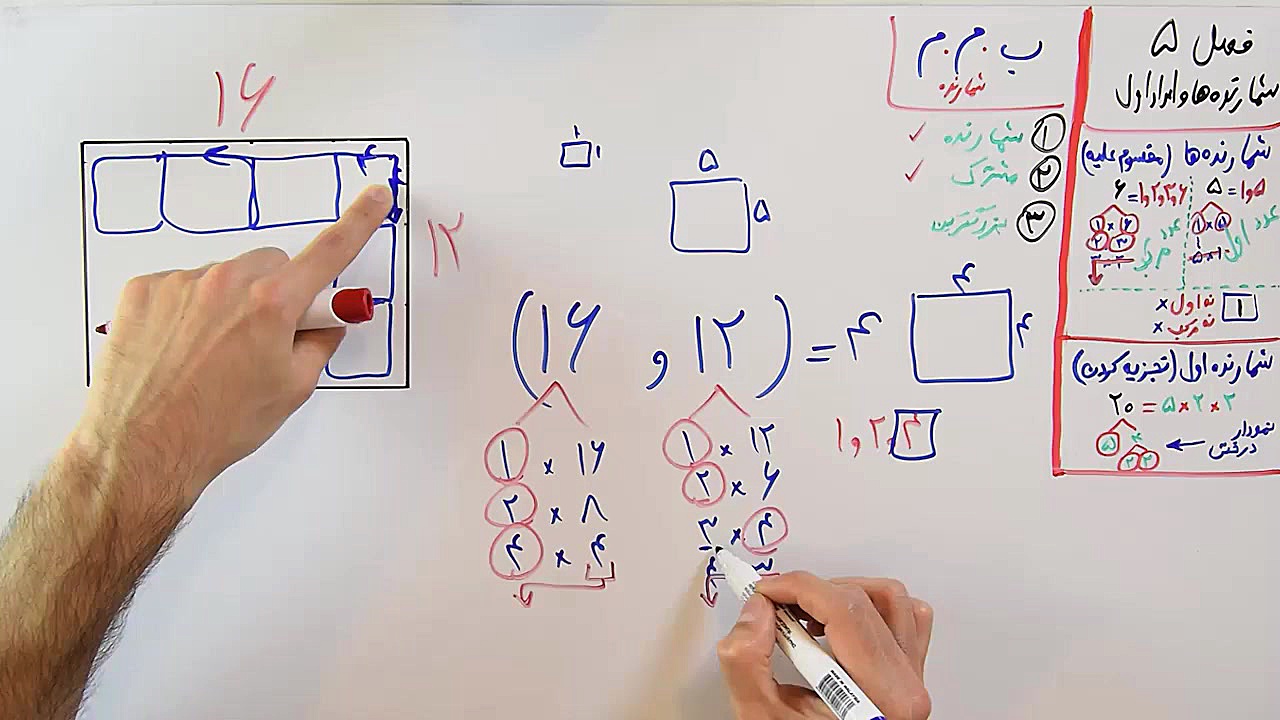 فصل ۵
شمارنده‌ها و اعداد اول
شمارنده‌ها (مقسوم علیه)
۶ = ۱,۲,۳,۶
۵ = ۱,۵
۱ × ۶
۲ × ۳
۱ × ۵
۵ × ۱
عدد اول
عدد مرکب
۱
نه اول ×
نه مرکب ×
شمارنده اول (تجزیه کردن)
۲۰ = ۵ × ۲ × ۲
۵ ۴
۲ ۲
نمودار درختی
ب.م.م
شمارنده
۱ شمارنده ✓
۲ مشترک ✓
۳ بزرگترین
۱۶
۱۲
۴
۱
۱
۵
۵
۴
۴
(۱۶ , ۱۲) = ۴
۱ × ۱۶
۲ × ۸
۴ × ۴
۱ × ۱۲
۲ × ۶
۳ × ۴
۱ , ۲ , ۴